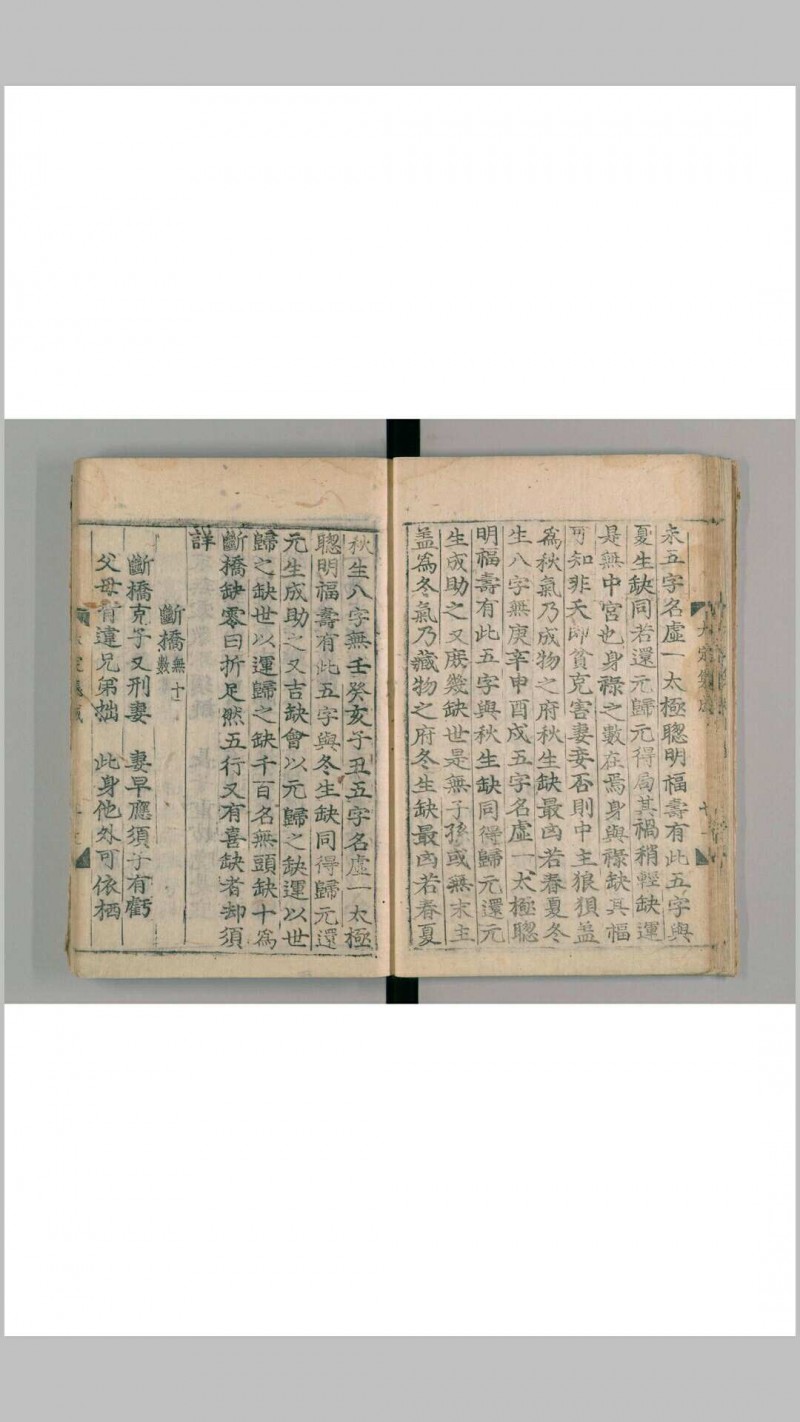 未五字名虛一太極聰明福壽有此五字與
夏生缺同若還元歸元得局其禍稍輕缺運
是無中宮也身祿之數在焉身與祿缺其福
可知非夭即貧克害妻妾否則中主狼狽蓋
爲秋氣乃成物之府秋生缺最凶若春夏冬
生八字無庚辛申酉戌五字名虛一太極聰
明福壽有此五字與秋生缺同得歸元還元
生成助之又庶幾缺世是無子孫或無末主
蓋爲冬氣乃藏物之府冬生缺最凶若春夏
秋生八字無壬癸亥子丑五字名虛一太極
聰明福壽有此五字與冬生缺同得歸元還
元生成助之又吉缺會以元歸之缺運以世
歸之缺世以運歸之缺千百名無頭缺十爲
斷橋缺零曰折足然五行又有喜缺者却須
詳
斷橋無十數
斷橋克子又刑妻 妻早應須子有虧
父母背違兄弟拙 此身他外可依栖